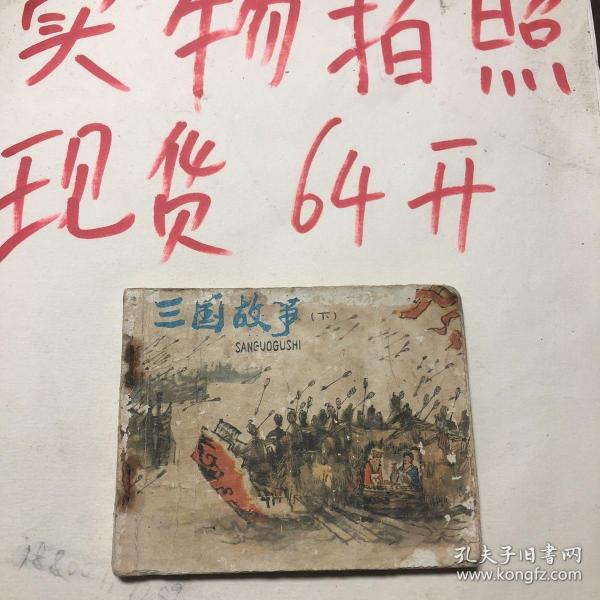 实物拍照
现货 64开
三国故事(下)
SANGUOGUSHI
孔夫子旧书网
www.kongfz.com